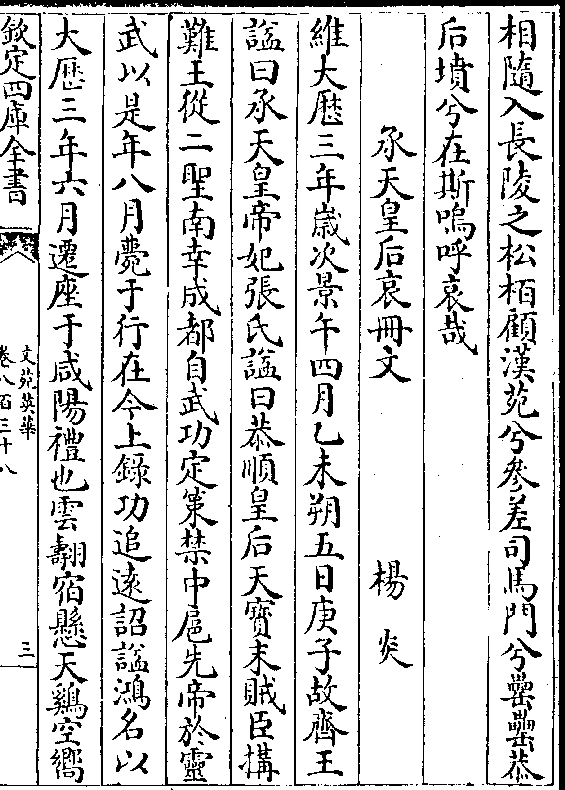 相隨入長陵之松栢顧漢苑兮參差司馬門兮罍罍恭
后墳兮在斯嗚呼哀哉
承天皇后哀冊文 楊炎
維大厯三年歳次景午四月乙未朔五日庚子故齊王
諡曰承天皇帝妃張氏諡曰恭順皇后天寳末賊臣搆
難王從二聖南幸成都自武功定策禁中扈先帝於靈
武以是年八月薨于行在今上錄功追逺詔諡鴻名以
大厯三年六月遷座于咸陽禮也雲翿宿懸天鷄空嚮
欽定四庫全書
文苑英華
卷八百三十八
三